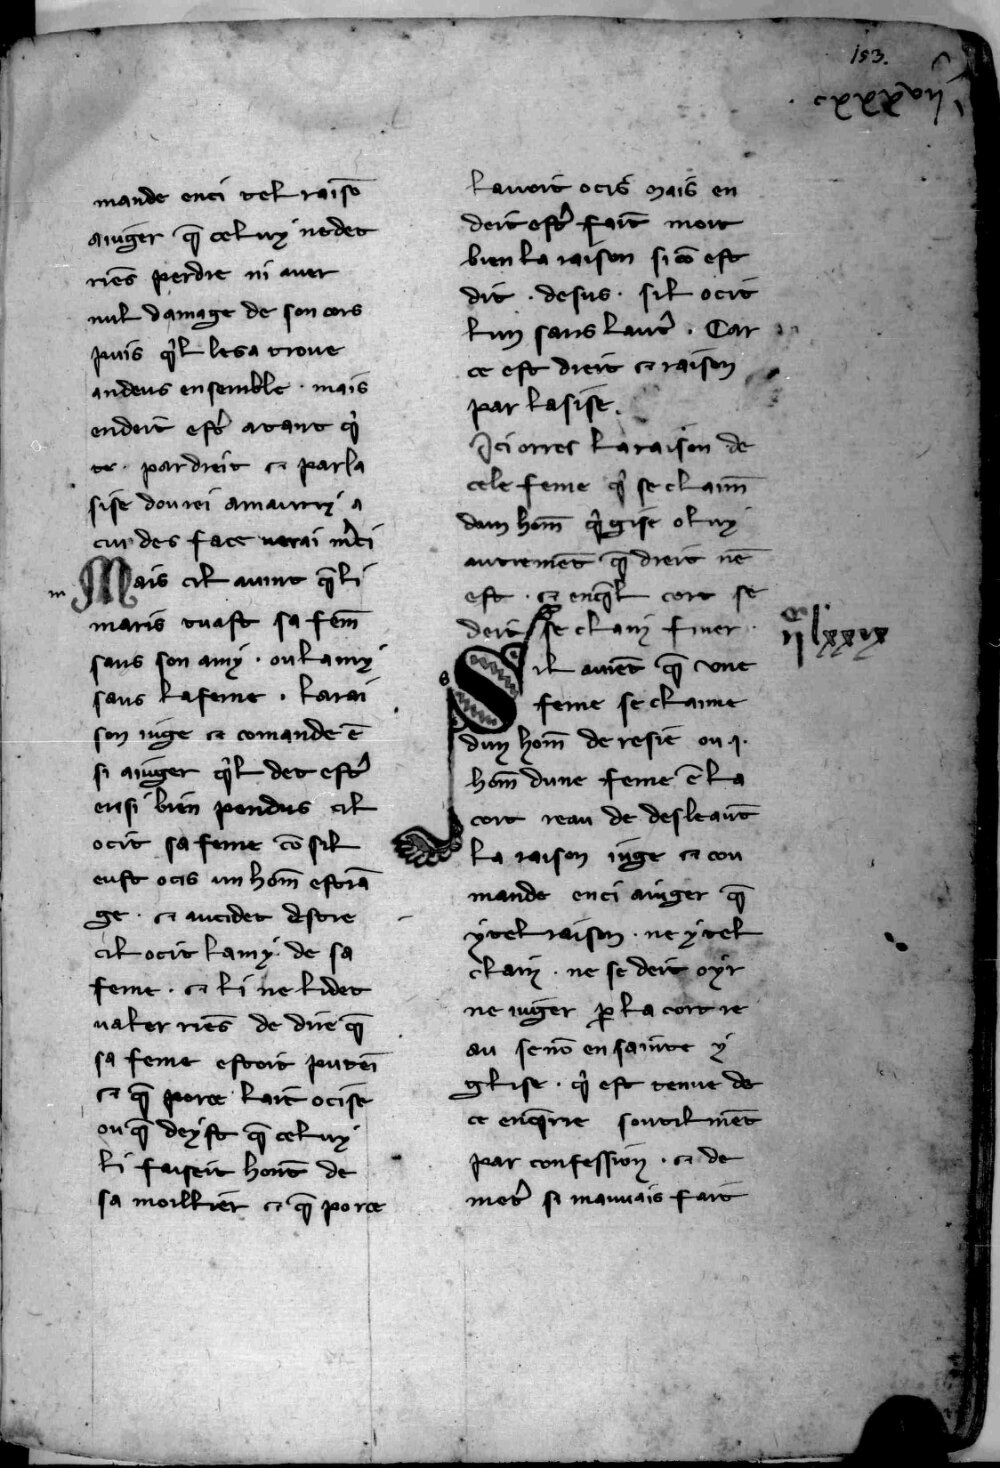 153.
cxxxvij
mande enci tel raisō
a iuger q̄ celuy ne det
riēs perdre ni auer
nul damage de son cors
puis q̉l lesa troue
andeus ensemble · mais
endeit estr̉ atant q̉
te · par dreit ⁊ par la
sise dou rei amaurry a
cui des face uerai m̉ci
m Mais cil auint q̄ li
maris tuast sa fem̄
sans son amy · ou lamy
sans la feme · la rai
son iuge ⁊ comande ē
si a iuger q̉l det estr̉
ensi bien pendus cil
ocit sa feme cō sil
eust ocis un hom̄ estrā
ge · ⁊ aucidet destre
cil ocit lamy · de sa
feme · ⁊ li ne li det
ualer riēs de dire q̄
sa feme estoit putēi
⁊ q̄ porce lait ocise
ou q̄ deyst q̄ celuy
li faiseit hont̄ de
sa moillier ⁊ q̄ porce
lauoit ocis mais en
deit estr̉ fait mout
bien la raison si cō est
dit · desus · sil ocit
lun sans lautr̉ · Car
ce est dreit ⁊ raison
par lasise.
Ici orres la raison de
cele feme q̉ se claim̄
dun hom̄ q̉ gise o luy
autremēt q̄ dreit nē
est · ⁊ en q̄l cort se
deit se claim finer ·
ijͨ lxxix
s Sil auiēt q̄ une
feme se claime
dun hom̄ de resie ou ·i·
hom̄ dune feme ē la
cort reau de desleaut̄
la raison iuge ⁊ cou
mande enci a iuger q̄
ytel raison · ne ytel
claim · ne se deit oyr
ne iuger p̱ la cort re
au se nō en sainte y
glise · q̉ est tenue de
ce enq̄rre soutilmēt
par confession · ⁊ de
metr̉ si mauuais fait